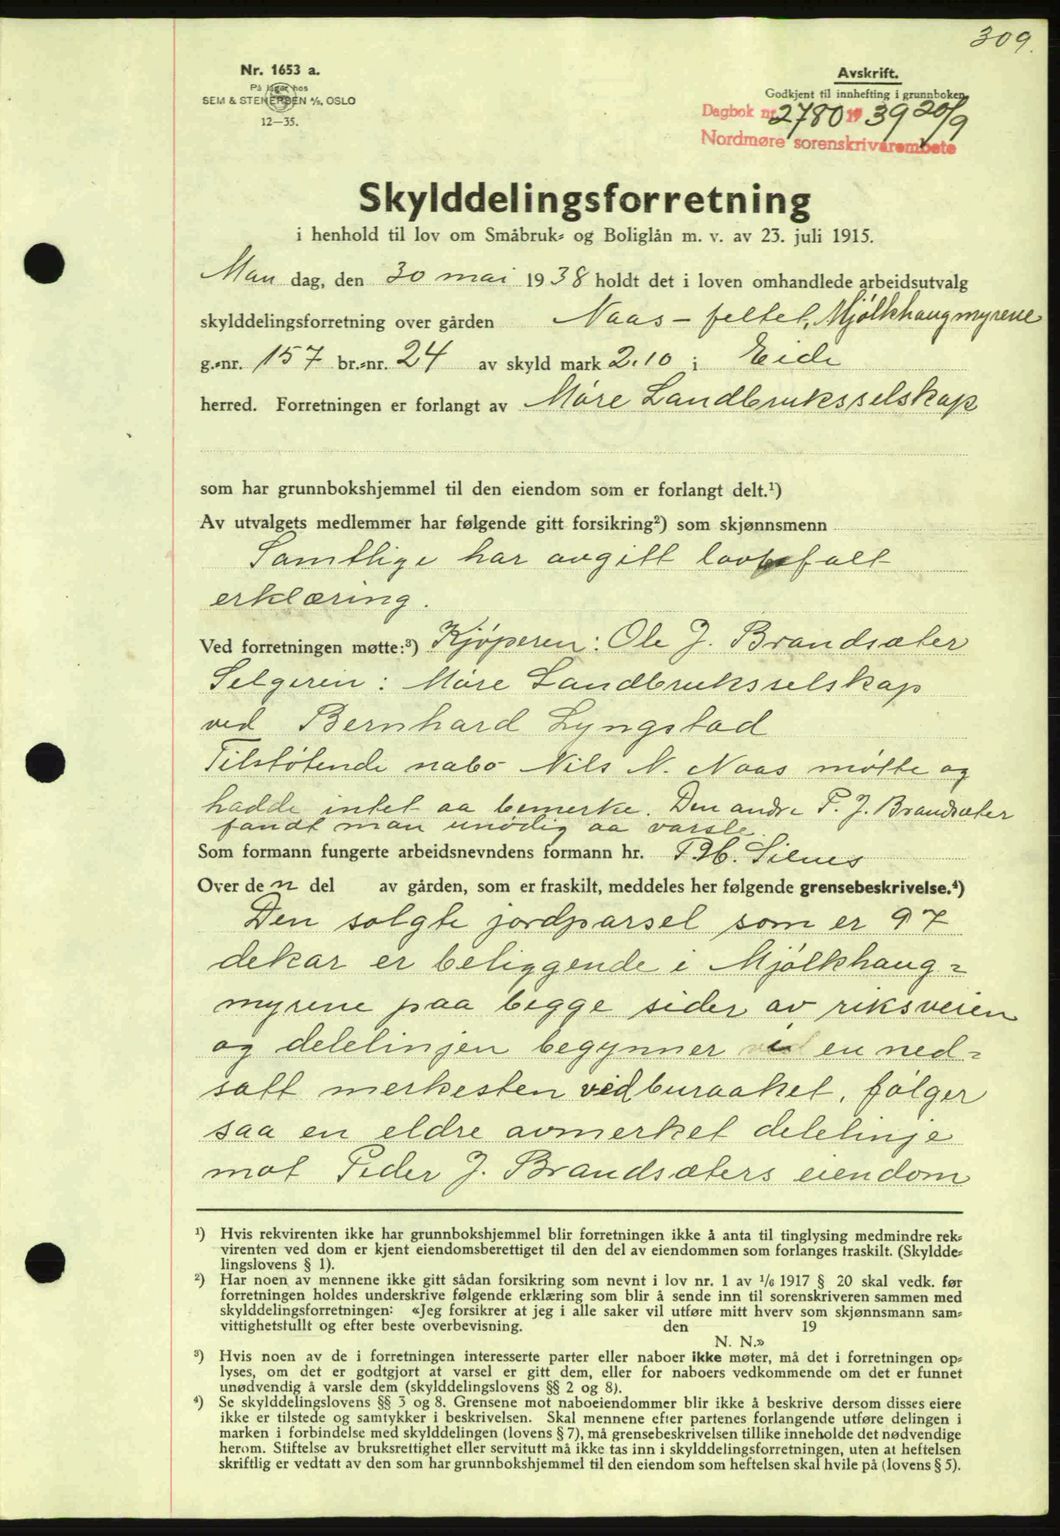 309.
Nr. 1653 a.
På lager hos
SEM & STENERSEN A/S, OSLO
12—35.
Avskrift.
Godkjent til innhefting i grunnboken
Dagbok nr. 2780 1939 20/9
Nordmøre sorenskriverembete
Skylddelingsforretning
i henhold til lov om Småbruk- og Boliglån m. v. av 23. juli 1915.
Mandag, den 30 mai 1938 holdt det i loven omhandlede arbeidsutvalg
skylddelingsforretning over gården Naas-feltet, Mjölkhaugmyrene
g.-nr. 157 br.-nr. 24 av skyld mark 2.10 i Eide
herred. Forretningen er forlangt av Møre Landbruksselskap
som har grunnbokshjemmel til den eiendom som er forlangt delt.¹)
Av utvalgets medlemmer har følgende gitt forsikring²) som skjønnsmenn
Samtlige har avgitt lovbefalt
erklæring.
Ved forretningen møtte:³) Kjøperen: Ole J. Brandsæter
Selgeren: Møre Landbruksselskap
ved Bernhard Lyngstad
Tilstøtende nabo Nils N. Naas møtte og
hadde intet aa bemerke. Den andre P. J. Brandsæter
fandt man unødig aa varsle.
Som formann fungerte arbeidsnevndens formann hr. P. H. Silnes
Over den del av gården, som er fraskilt, meddeles her følgende grensebeskrivelse.⁴)
Den solgte jordparsel som er 97
dekar er beliggende i Mjölkhaug=
myrene paa begge sider av riksveien
og delelinjen begynner i en ned=
satt merkesten ved buraaket, følger
saa en eldre avmerket delelinje
mot Peder J. Brandsæters eiendom
¹) Hvis rekvirenten ikke har grunnbokshjemmel blir forretningen ikke å anta til tinglysing medmindre rek-
virenten ved dom er kjent eiendomsberettiget til den del av eiendommen som forlanges fraskilt. (Skyldde-
lingslovens § 1).
²) Har noen av mennene ikke gitt sådan forsikring som nevnt i lov nr. 1 av 1/6 1917 § 20 skal vedk. før
forretningen holdes underskrive følgende erklæring som blir å sende inn til sorenskriveren sammen med
skylddelingsforretningen: «Jeg forsikrer at jeg i alle saker vil utføre mitt hverv som skjønnsmann sam-
vittighetsfullt og efter beste overbevisning. den 19
N. N.»
³) Hvis noen av de i forretningen interesserte parter eller naboer ikke møter, må det i forretningen op-
lyses, om det er godtgjort at varsel er gitt dem, eller for naboers vedkommende om det er funnet
unødvendig å varsle dem (skylddelingslovens §§ 2 og 8).
⁴) Se skylddelingslovens §§ 3 og 8. Grensene mot naboeiendommer blir ikke å beskrive dersom disses eiere
ikke er tilstede og samtykker i beskrivelsen. Skal mennene efter partenes forlangende utføre delingen i
marken i forbindelse med skylddelingen (lovens § 7), må grensebeskrivelsen tillike inneholde det nødvendige
herom. Stiftelse av bruksrettighet eller servitutt må ikke tas inn i skylddelingsforretningen, uten at heftelsen
skriftlig er vedtatt av den som har grunnbokshjemmel til den eiendom som heftelsen skal hvile på (lovens § 5).